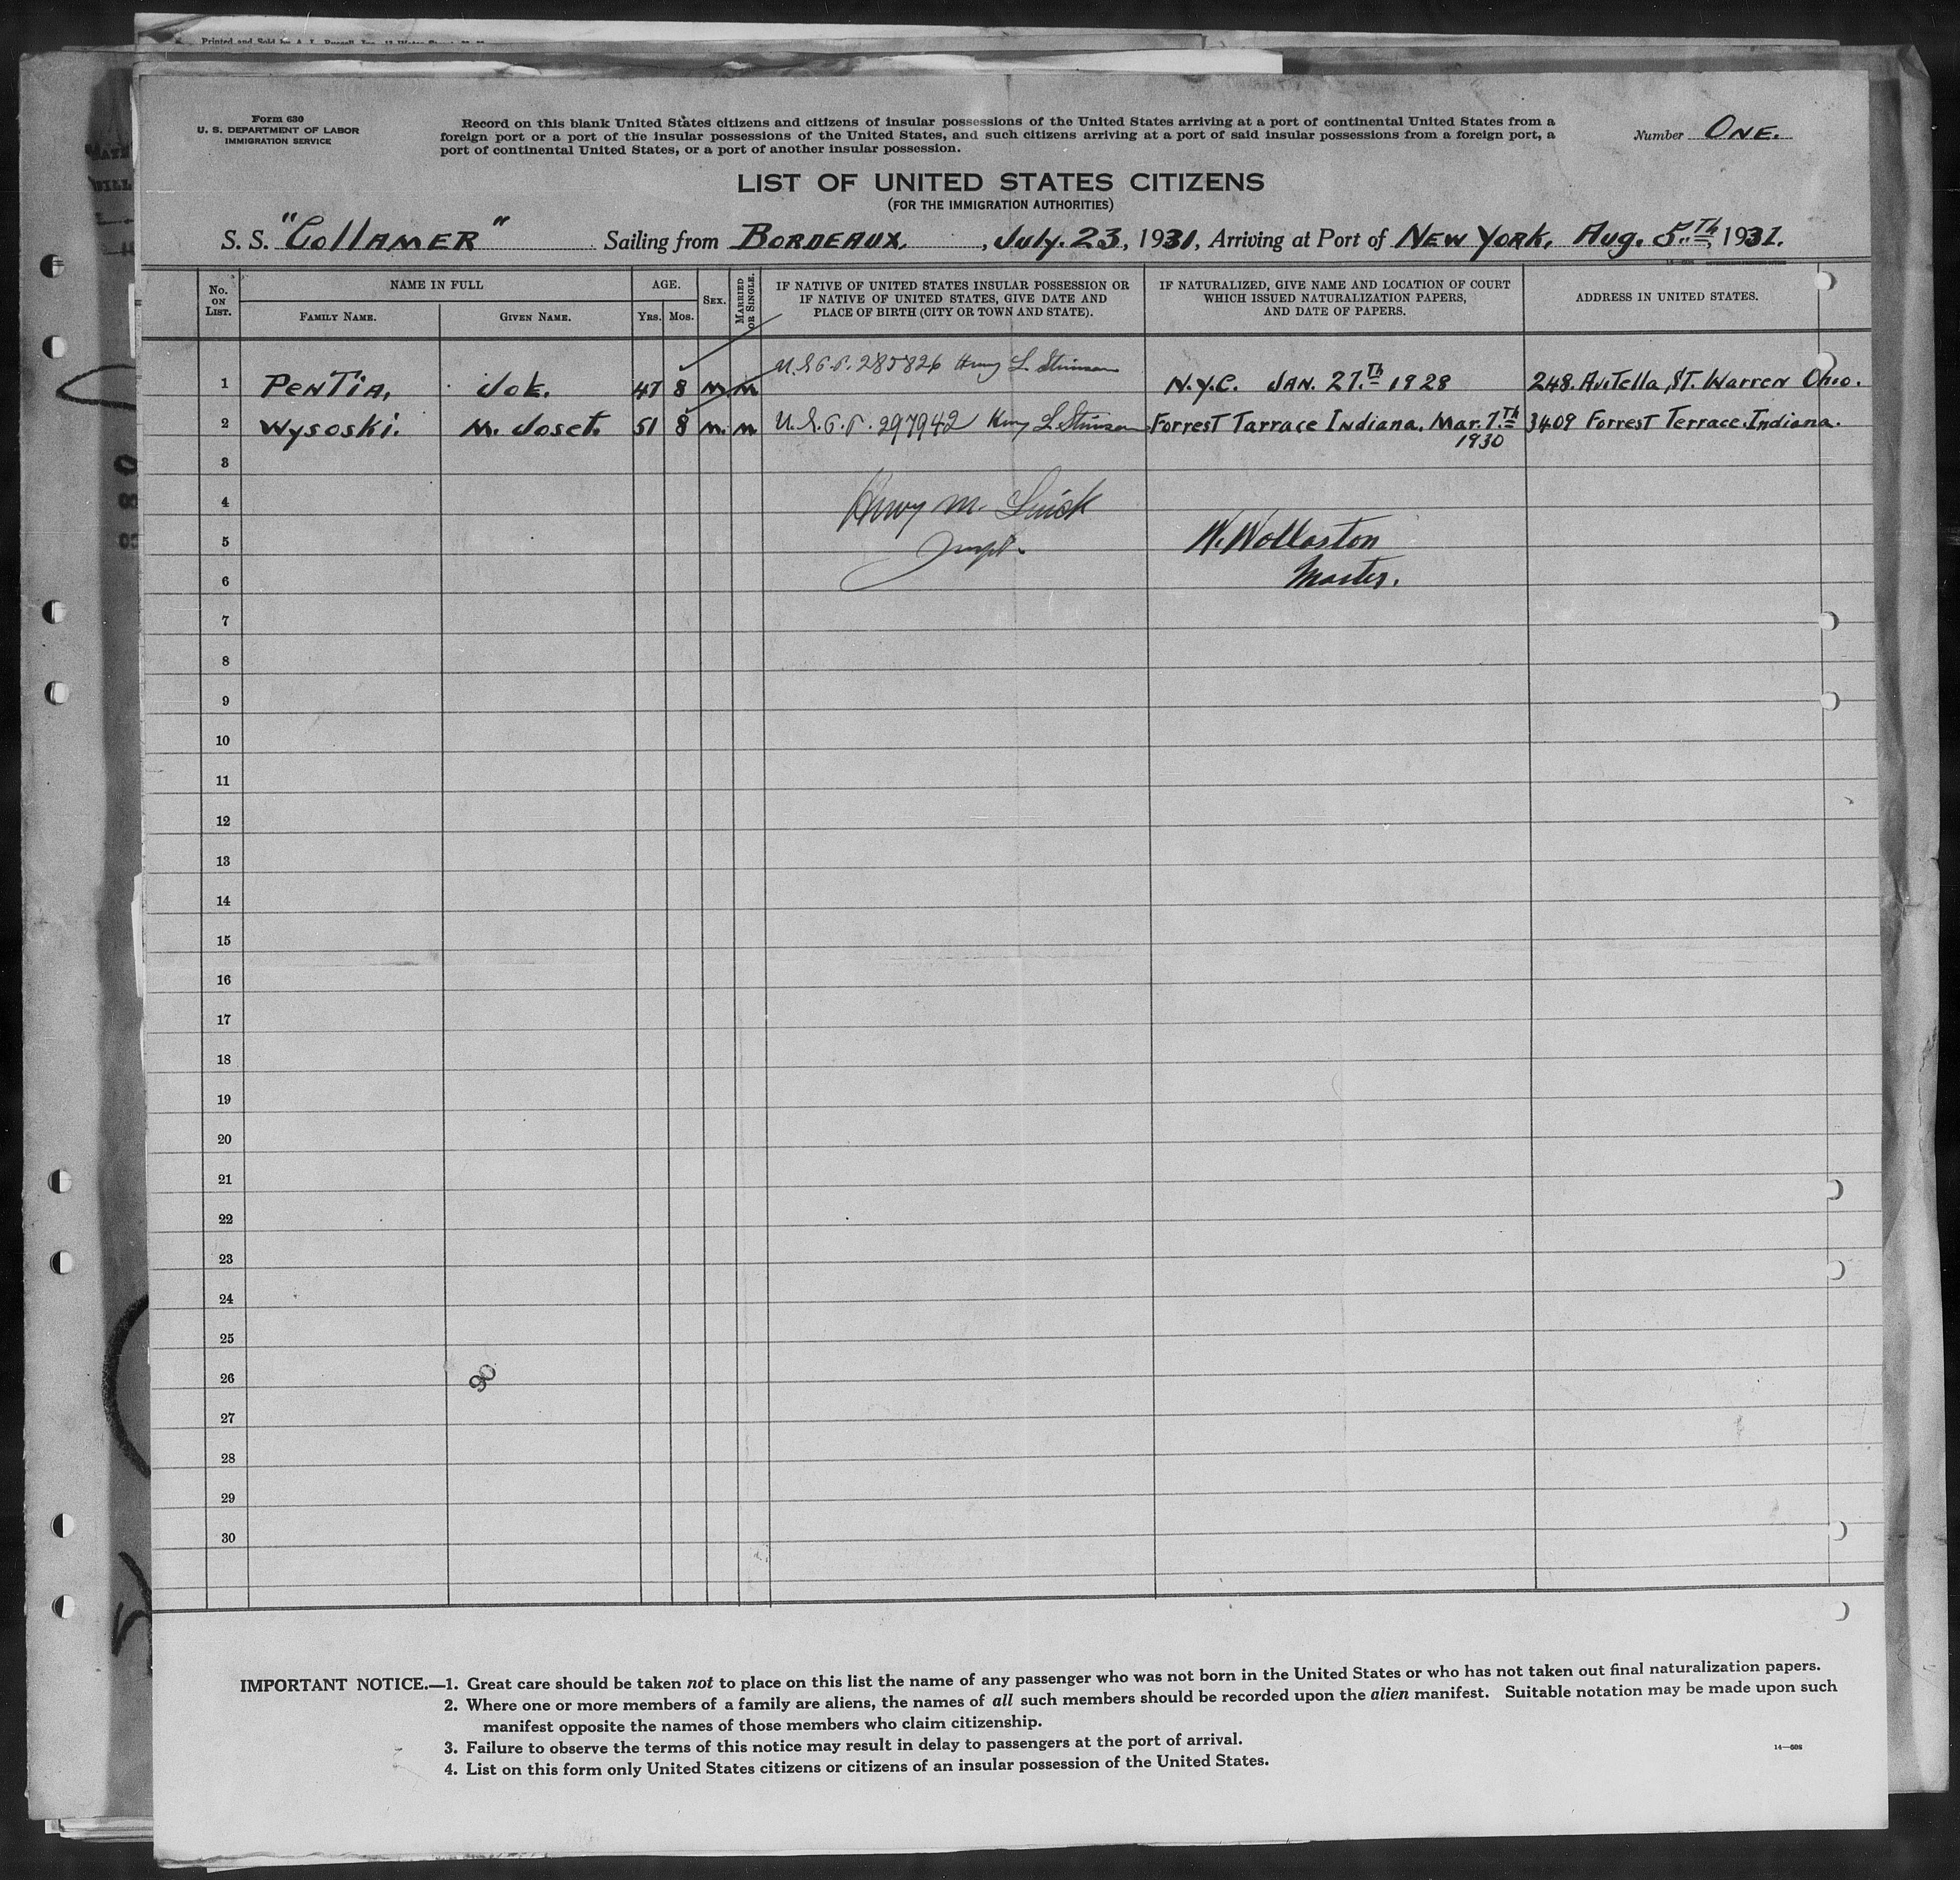 Printed and Sold by
Form 630
U. S. DEPARTMENT OF LABOR
IMMIGRATION SERVICE
Record on this blank United States citizens and citizens of insular possessions of the United States arriving at a port of continental United States from a
foreign port or a port of the insular possessions of the United States, and such citizens arriving at a port of said insular possessions from a foreign port, a
port of continental United States, or a port of another insular possession.
Number ONE.
LIST OF UNITED STATES CITIZENS
(FOR THE IMMIGRATION AUTHORITIES)
S. S. "COllAMER" Sailing from BORDEAUX, July. 23, 1931, Arriving at Port of NEW YORK, Aug. 5.Th, 1931.
No. ON LIST.
NAME IN FULL
FAMILY NAME.
GIVEN NAME.
AGE.
YRS.
MOS.
SEX.
MARRIED OR SINGLE.
IF NATIVE OF UNITED STATES INSULAR POSSESSION OR
IF NATIVE OF UNITED STATES, GIVE DATE AND
PLACE OF BIRTH (CITY OR TOWN AND STATE).
IF NATURALIZED, GIVE NAME AND LOCATION OF COURT
WHICH ISSUED NATURALIZATION PAPERS,
AND DATE OF PAPERS.
ADDRESS IN UNITED STATES.
1 PENTiA, JOE. 47 8 M M 285826 Henry L Stimson N.Y.C. JAN. 27.Th 1928 248. St. Warren Ohio.
2 Wysoski. M. Josef. 51 8 M. M 297942 Henry L Stimson Forrest Tarrace Indiana, Mar. 7.Th 3409 Forrest Terrace Indiana.
1930
3
4
Henry M.
5
W. Wollaston
Inspt.
6
Master.
7
8
9
10
11
12
13
14
15
16
17
18
19
20
21
22
23
24
25
26
90
27
28
29
30
IMPORTANT NOTICE.—1. Great care should be taken not to place on this list the name of any passenger who was not born in the United States or who has not taken out final naturalization papers.
2. Where one or more members of a family are aliens, the names of all such members should be recorded upon the alien manifest. Suitable notation may be made upon such
manifest opposite the names of those members who claim citizenship.
3. Failure to observe the terms of this notice may result in delay to passengers at the port of arrival.
4. List on this form only United States citizens or citizens of an insular possession of the United States.